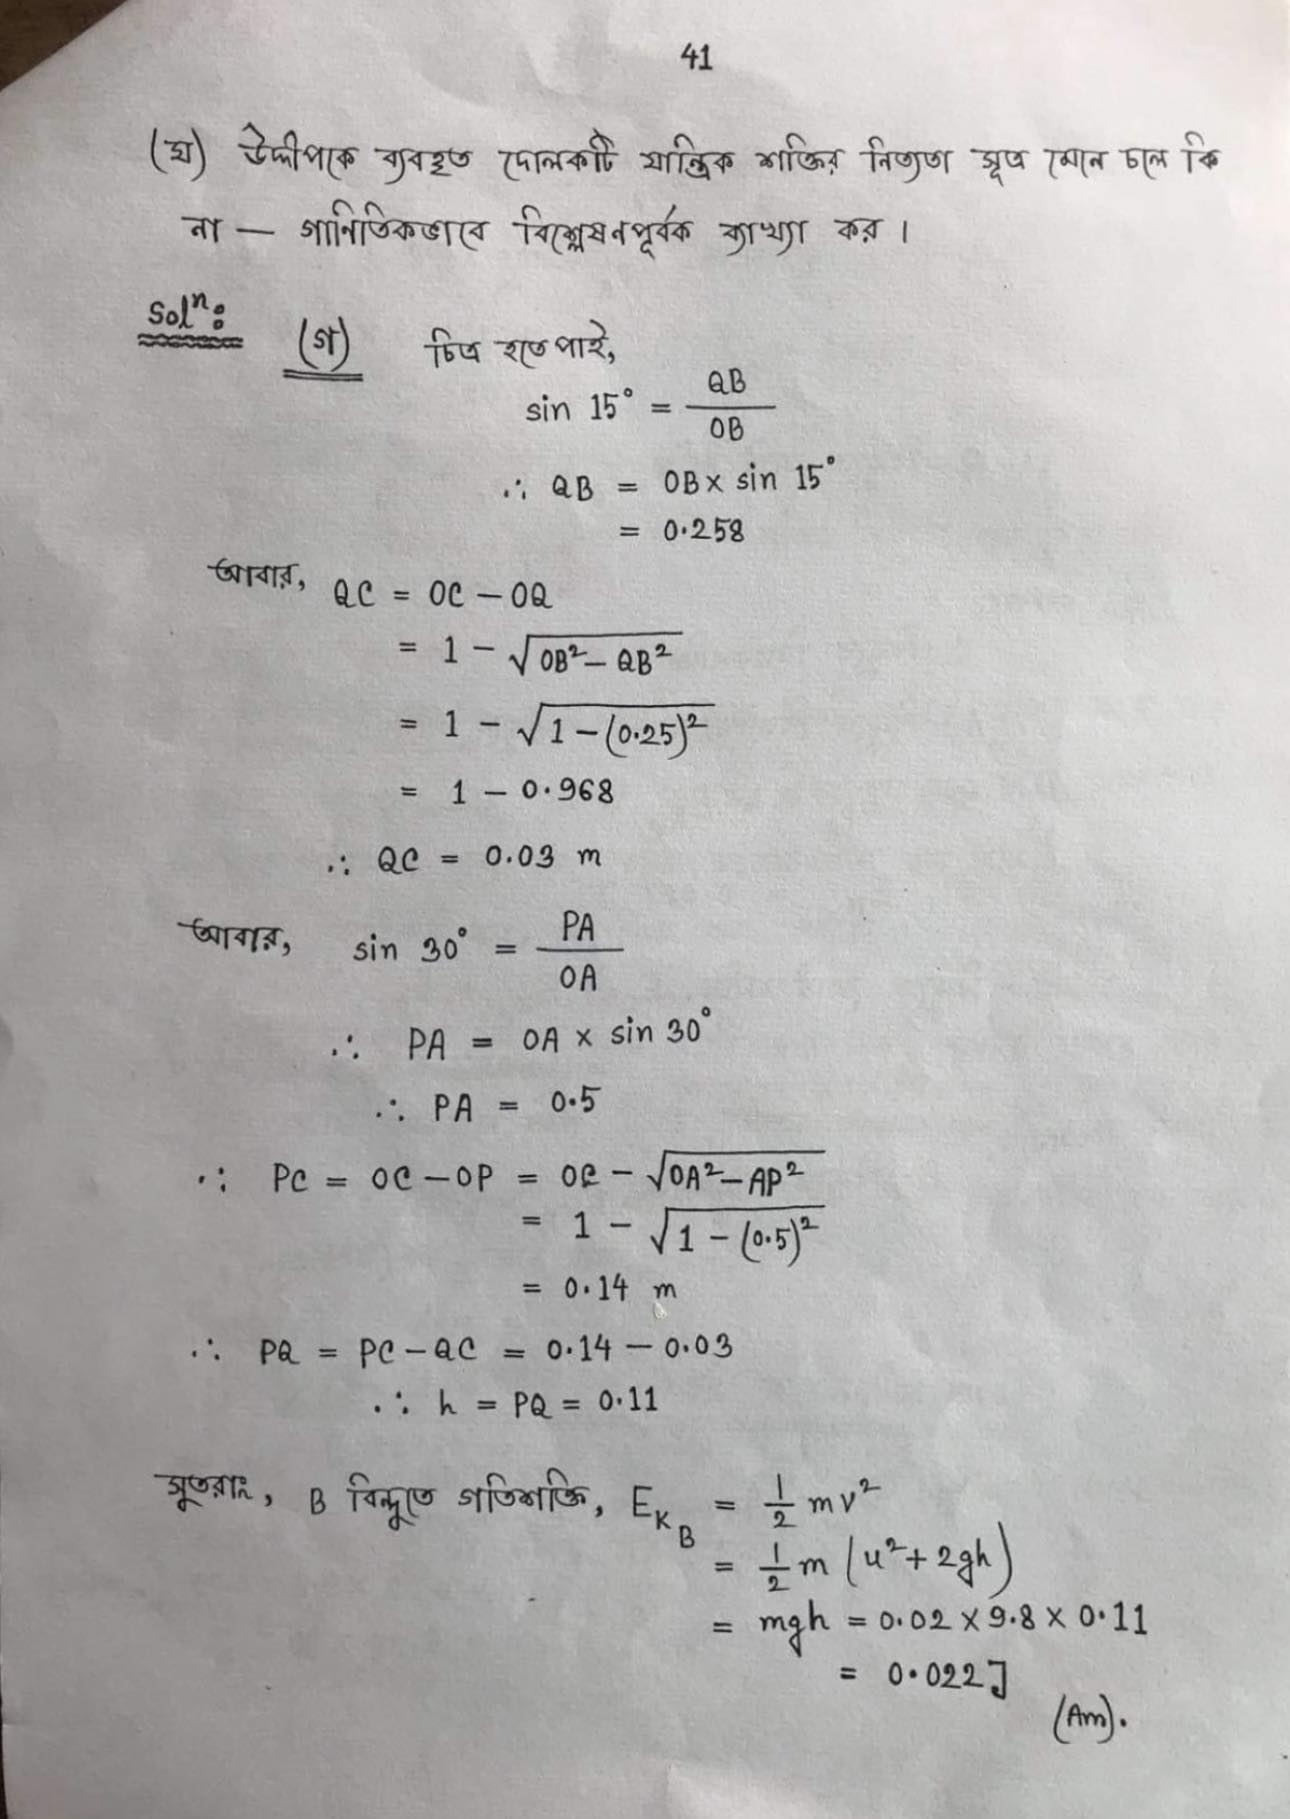 41
(ঘ) উদ্দীপকে ব্যবহৃত দোলকটি যান্ত্রিক শক্তির নিত্যতা সূত্র মেনে চলে কি
না — গানিতিকভাবে বিশ্লেষনপূর্বক ব্যাখ্যা কর ।
Solⁿ: (গ) চিত্র হতে পাই,
sin 15° = QB / OB
∴ QB = OB × sin 15°
= 0.258
আবার, QC = OC − OQ
= 1 − √(OB² − QB²)
= 1 − √(1 − (0.25)²)
= 1 − 0.968
∴ QC = 0.03 m
আবার, sin 30° = PA / OA
∴ PA = OA × sin 30°
∴ PA = 0.5
∴ PC = OC − OP = OC − √(OA² − AP²)
= 1 − √(1 − (0.5)²)
= 0.14 m
∴ PQ = PC − QC = 0.14 − 0.03
∴ h = PQ = 0.11
সুতরাং, B বিন্দুতে গতিশক্তি, E_K_B = 1/2 mv²
= 1/2 m (u² + 2gh)
= mgh = 0.02 × 9.8 × 0.11
= 0.022 J
(Am).